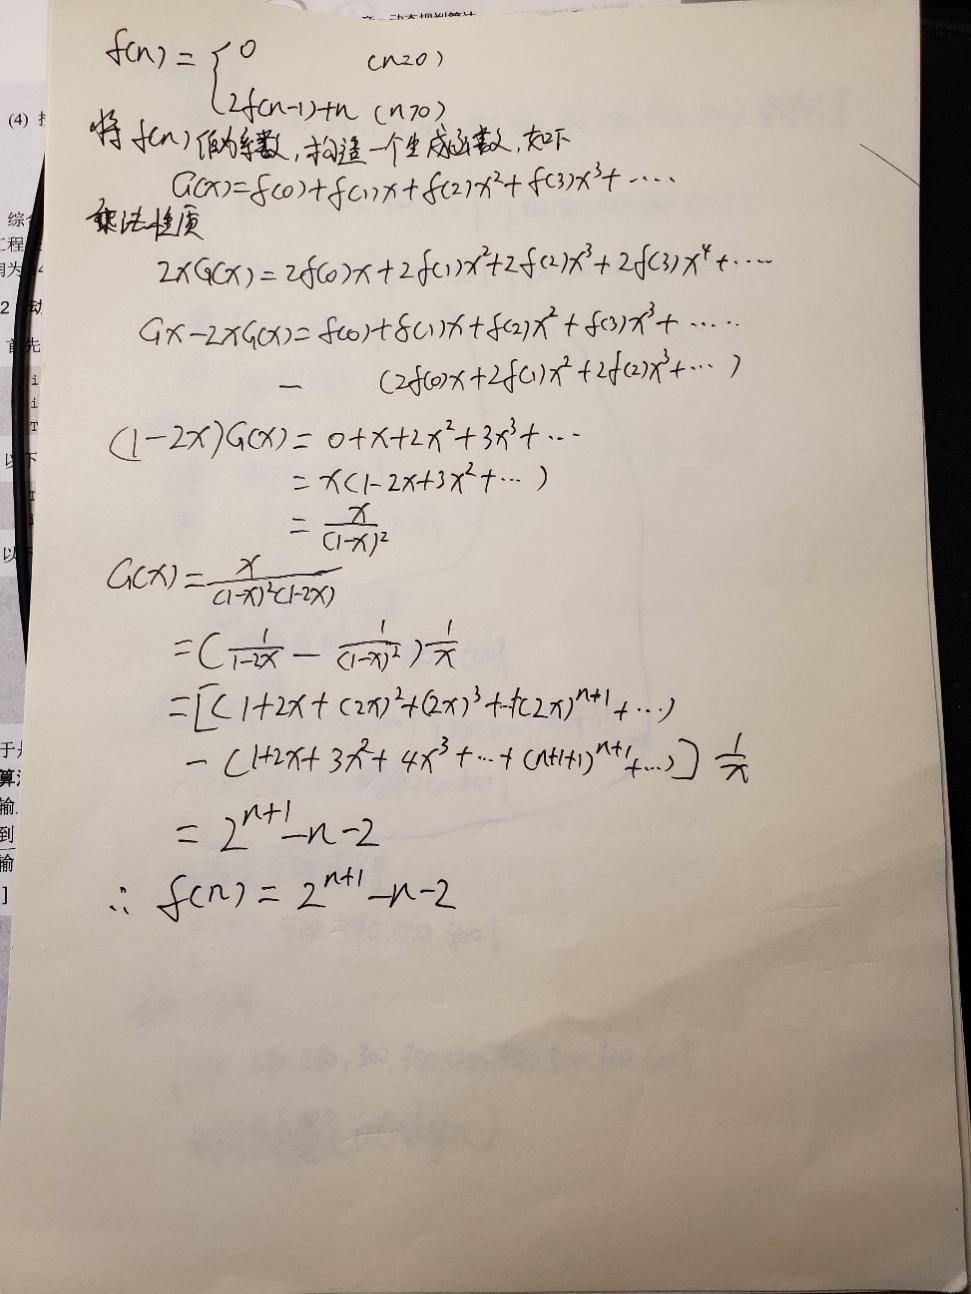 f(n) = { 0 (n=0)
2f(n-1)+n (n>0)
将 f(n) 作为系数, 构造一个生成函数, 如下
G(x)=f(0)+f(1)x+f(2)x²+f(3)x³+····
乘法性质
2xG(x)=2f(0)x+2f(1)x²+2f(2)x³+2f(3)x⁴+····
Gx-2xG(x)=f(0)+f(1)x+f(2)x²+f(3)x³+·····
- (2f(0)x+2f(1)x²+2f(2)x³+···)
(1-2x)G(x)=0+x+2x²+3x³+···
=x(1-2x+3x²+···)
=x/(1-x)²
G(x)=x/((1-x)²(1-2x))
=(1/(1-2x) - 1/(1-x)²)1/x
=[(1+2x+(2x)²+(2x)³+··+(2x)ⁿ⁺¹+···)
-(1+2x+3x²+4x³+···+(n+1+1)ⁿ⁺¹+···)]1/x
=2ⁿ⁺¹-n-2
∴ f(n)=2ⁿ⁺¹-n-2
(4)
综合
工程
2 动
首先
i
i
T
以下
以下
于
输
到
输
]